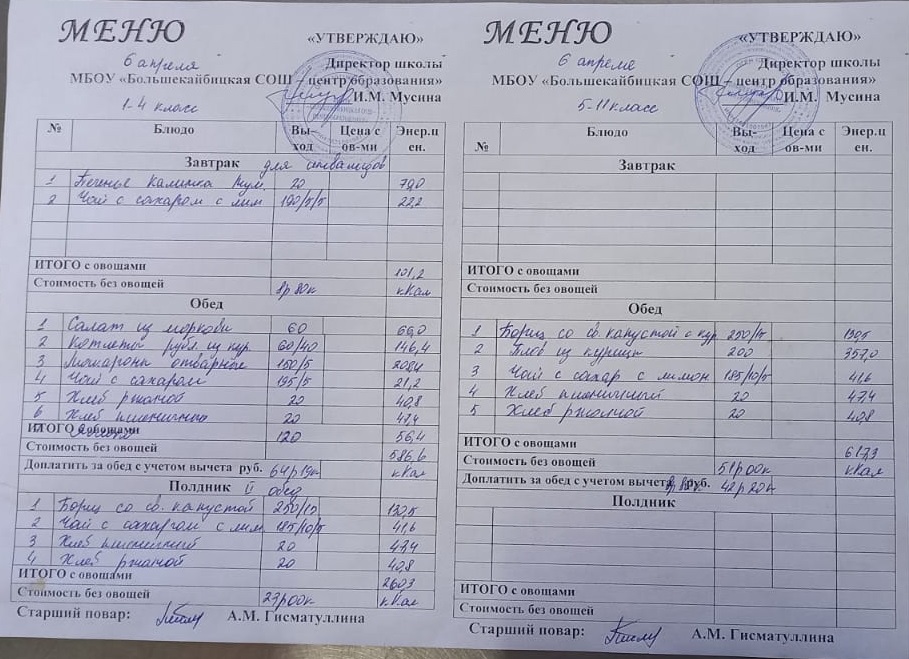 МЕНЮ
«УТВЕРЖДАЮ»
6 апреля
Директор школы
МБОУ «Большекайбицкая СОШ – центр образования»
И.М. Мусина
1-4 класс
№ Блюдо Вы-ход Цена с ов-ми Энер.ц ен.
Завтрак для
1 Печенье Калинка 20 79,0
2 Чай с сахаром с лим 190/5/5 22,2
ИТОГО с овощами 101,2
Стоимость без овощей 8р 80к кКал
Обед
1 Салат из моркови 60 66,0
2 Котлеты рубл. из кур 60/40 146,4
3 Макароны отварные 150/5 208,1
4 Чай с сахаром 195/5 21,2
5 Хлеб ржаной 20 40,8
6 Хлеб пшеничный 20 47,4
ИТОГО с овощами Яблоко 120 56,4
Стоимость без овощей 586,6
Доплатить за обед с учетом вычета руб. 64р 19к кКал
Полдник II обед
1 Борщ со св. капустой 250/10 130,5
2 Чай с сахаром с лим 185/10/5 41,6
3 Хлеб пшеничный 20 47,4
4 Хлеб ржаной 20 40,8
ИТОГО с овощами 260,3
Стоимость без овощей 23р00к кКал
Старший повар: А.М. Гисматуллина
МЕНЮ
«УТВЕРЖДАЮ»
6 апреля
Директор школы
МБОУ «Большекайбицкая СОШ – центр образования»
И.М. Мусина
5-11 класс
№ Блюдо Вы-ход Цена с ов-ми Энер.ц ен.
Завтрак
ИТОГО с овощами
Стоимость без овощей
Обед
1 Борщ со св. капустой с кур 250/15 130,5
2 Плов из курицы 200 357,0
3 Чай с сахар с лимон 185/10/5 41,6
4 Хлеб пшеничный 20 47,4
5 Хлеб ржаной 20 40,8
ИТОГО с овощами 617,3
Стоимость без овощей 51р00к кКал
Доплатить за обед с учетом вычета 8р 80к руб. 42р 20к
Полдник
ИТОГО с овощами
Стоимость без овощей
Старший повар: А.М. Гисматуллина